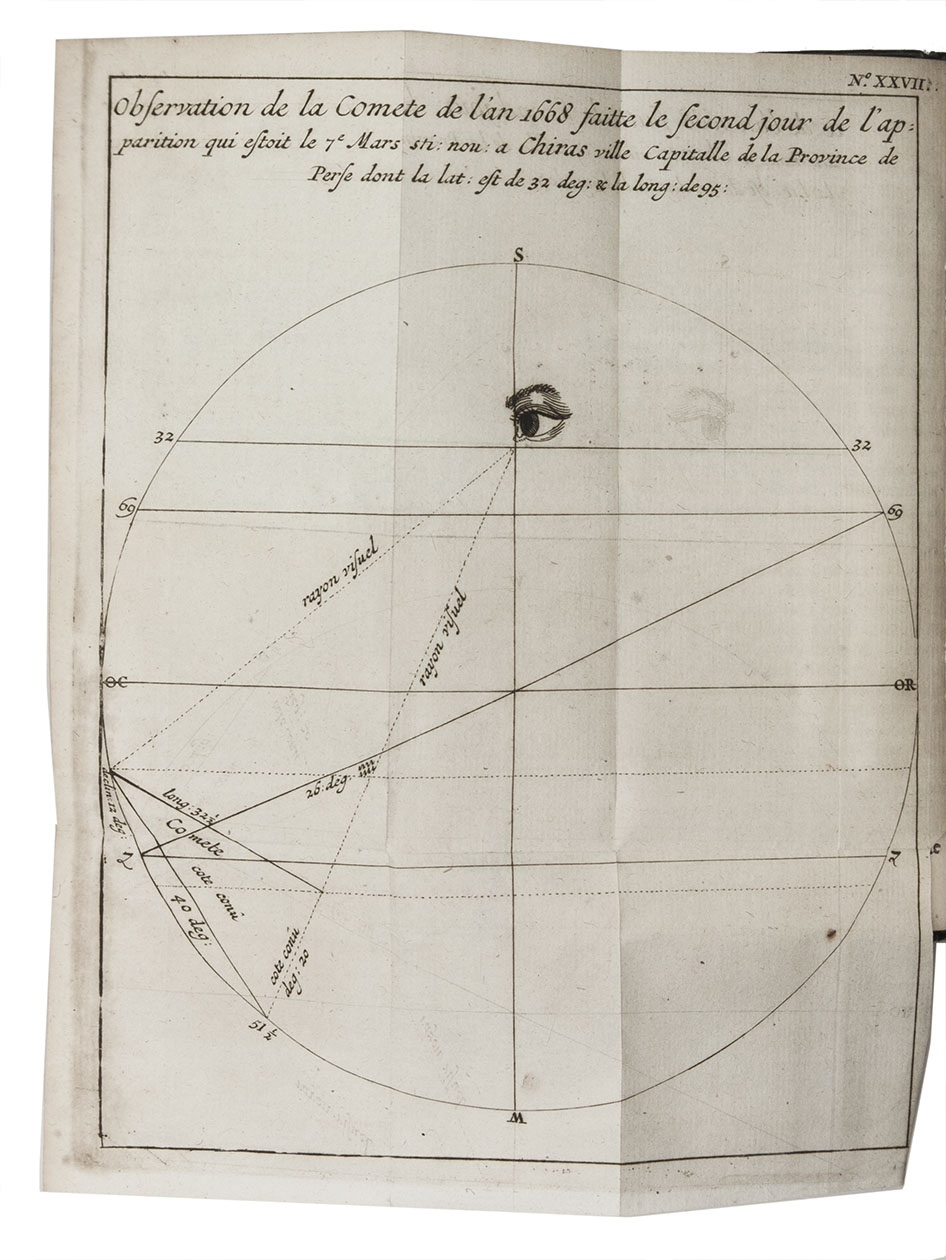 N.º XXVII.
Observation de la Comete de l'an 1668 faitte le second jour de l'ap=
parition qui estoit le 7e Mars sti: nou: a Chiras ville Capitalle de la Province de
Perse dont la lat: est de 32 deg: & la long: de 95:
S
32
32
69
69
rayon visuel
rayon visuel
OC
OR
26: deg
long: 32½
declin: 12 deg:
Comete
cote conû
40 deg:
cote conû
deg: 20
51½
M